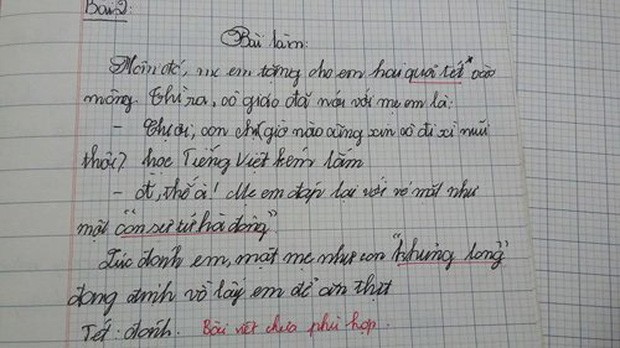 Bài 2:
Bài làm:
Hôm đó, mẹ em tặng cho em hai quả tét" vào
mông. Thì ra, cô giáo đã nói với mẹ em là:
- Chị ơi, con chị giờ nào cũng xin cô đi xì mũi
thôi? học Tiếng Việt kém lắm
- ờ, thế à! Mẹ em đáp lại với vẻ mặt như
một "con sư tử hà đông"
Lúc đánh em, mặt mẹ như con "khủng long"
đang định vồ lấy em để ăn thịt
Tét: đánh. Bài viết chưa phù hợp.